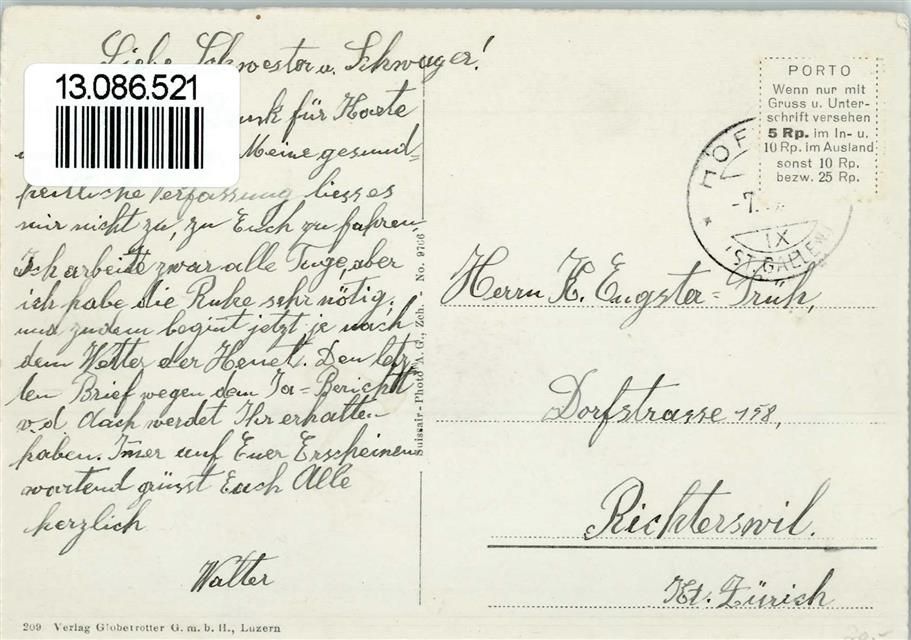 Liebe Schwester u. Schwager!
13.086.521
für Karte
Meine gesund=
heitliche Verfassung liess es
mir nicht zu, zu Euch zu fahren,
Ich arbeite zwar alle Tage, aber
ich habe die Ruhe sehr nötig,
und zudem begint jetzt je nach
dem Wetter der Heuet. Den letz
ten Brief wegen dem Ja=Bericht
v.d. dach werdet Ihr erhalten
haben. Imer auf Euer Erscheinen
wartend grüsst Euch Alle
herzlich
Walter
209 Verlag Globetrotter G. m. b. H., Luzern
Suissair-Photo A. G., Zch. - No. 9766
PORTO
Wenn nur mit
Gruss u. Unter-
schrift versehen
5 Rp. im In- u.
10 Rp. im Ausland
sonst 10 Rp.
bezw. 25 Rp.
HOF
-7.
IX
(ST. GALLEN)
Herrn K. Eugster=Früh,
Dorfstrasse 158,
Richterswil.
Kt. Zürich